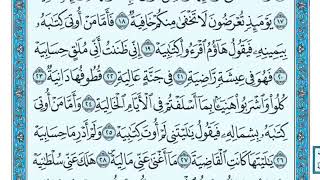 ١٧ يَوْمَئِذٍ تُعْرَضُونَ لَا تَخْفَىٰ مِنكُمْ خَافِيَةٌ ١٨ فَأَمَّا مَنْ أُوتِيَ كِتَٰبَهُۥ
بِيَمِينِهِۦ فَيَقُولُ هَآؤُمُ ٱقْرَءُوا۟ كِتَٰبِيَهْ ١٩ إِنِّي ظَنَنتُ أَنِّي مُلَٰقٍ حِسَابِيَهْ
٢٠ فَهُوَ فِي عِيشَةٍ رَّاضِيَةٍ ٢١ فِي جَنَّةٍ عَالِيَةٍ ٢٢ قُطُوفُهَا دَانِيَةٌ ٢٣
كُلُوا۟ وَٱشْرَبُوا۟ هَنِيٓـًٔۢا بِمَآ أَسْلَفْتُمْ فِي ٱلْأَيَّامِ ٱلْخَالِيَةِ ٢٤ وَأَمَّا مَنْ أُوتِيَ
كِتَٰبَهُۥ بِشِمَالِهِۦ فَيَقُولُ يَٰلَيْتَنِي لَمْ أُوتَ كِتَٰبِيَهْ ٢٥ وَلَمْ أَدْرِ مَا حِسَابِيَهْ
٢٦ يَٰلَيْتَهَا كَانَتِ ٱلْقَاضِيَةَ ٢٧ مَآ أَغْنَىٰ عَنِّي مَالِيَهْ ٢٨ هَلَكَ عَنِّي سُلْطَٰنِيَهْ